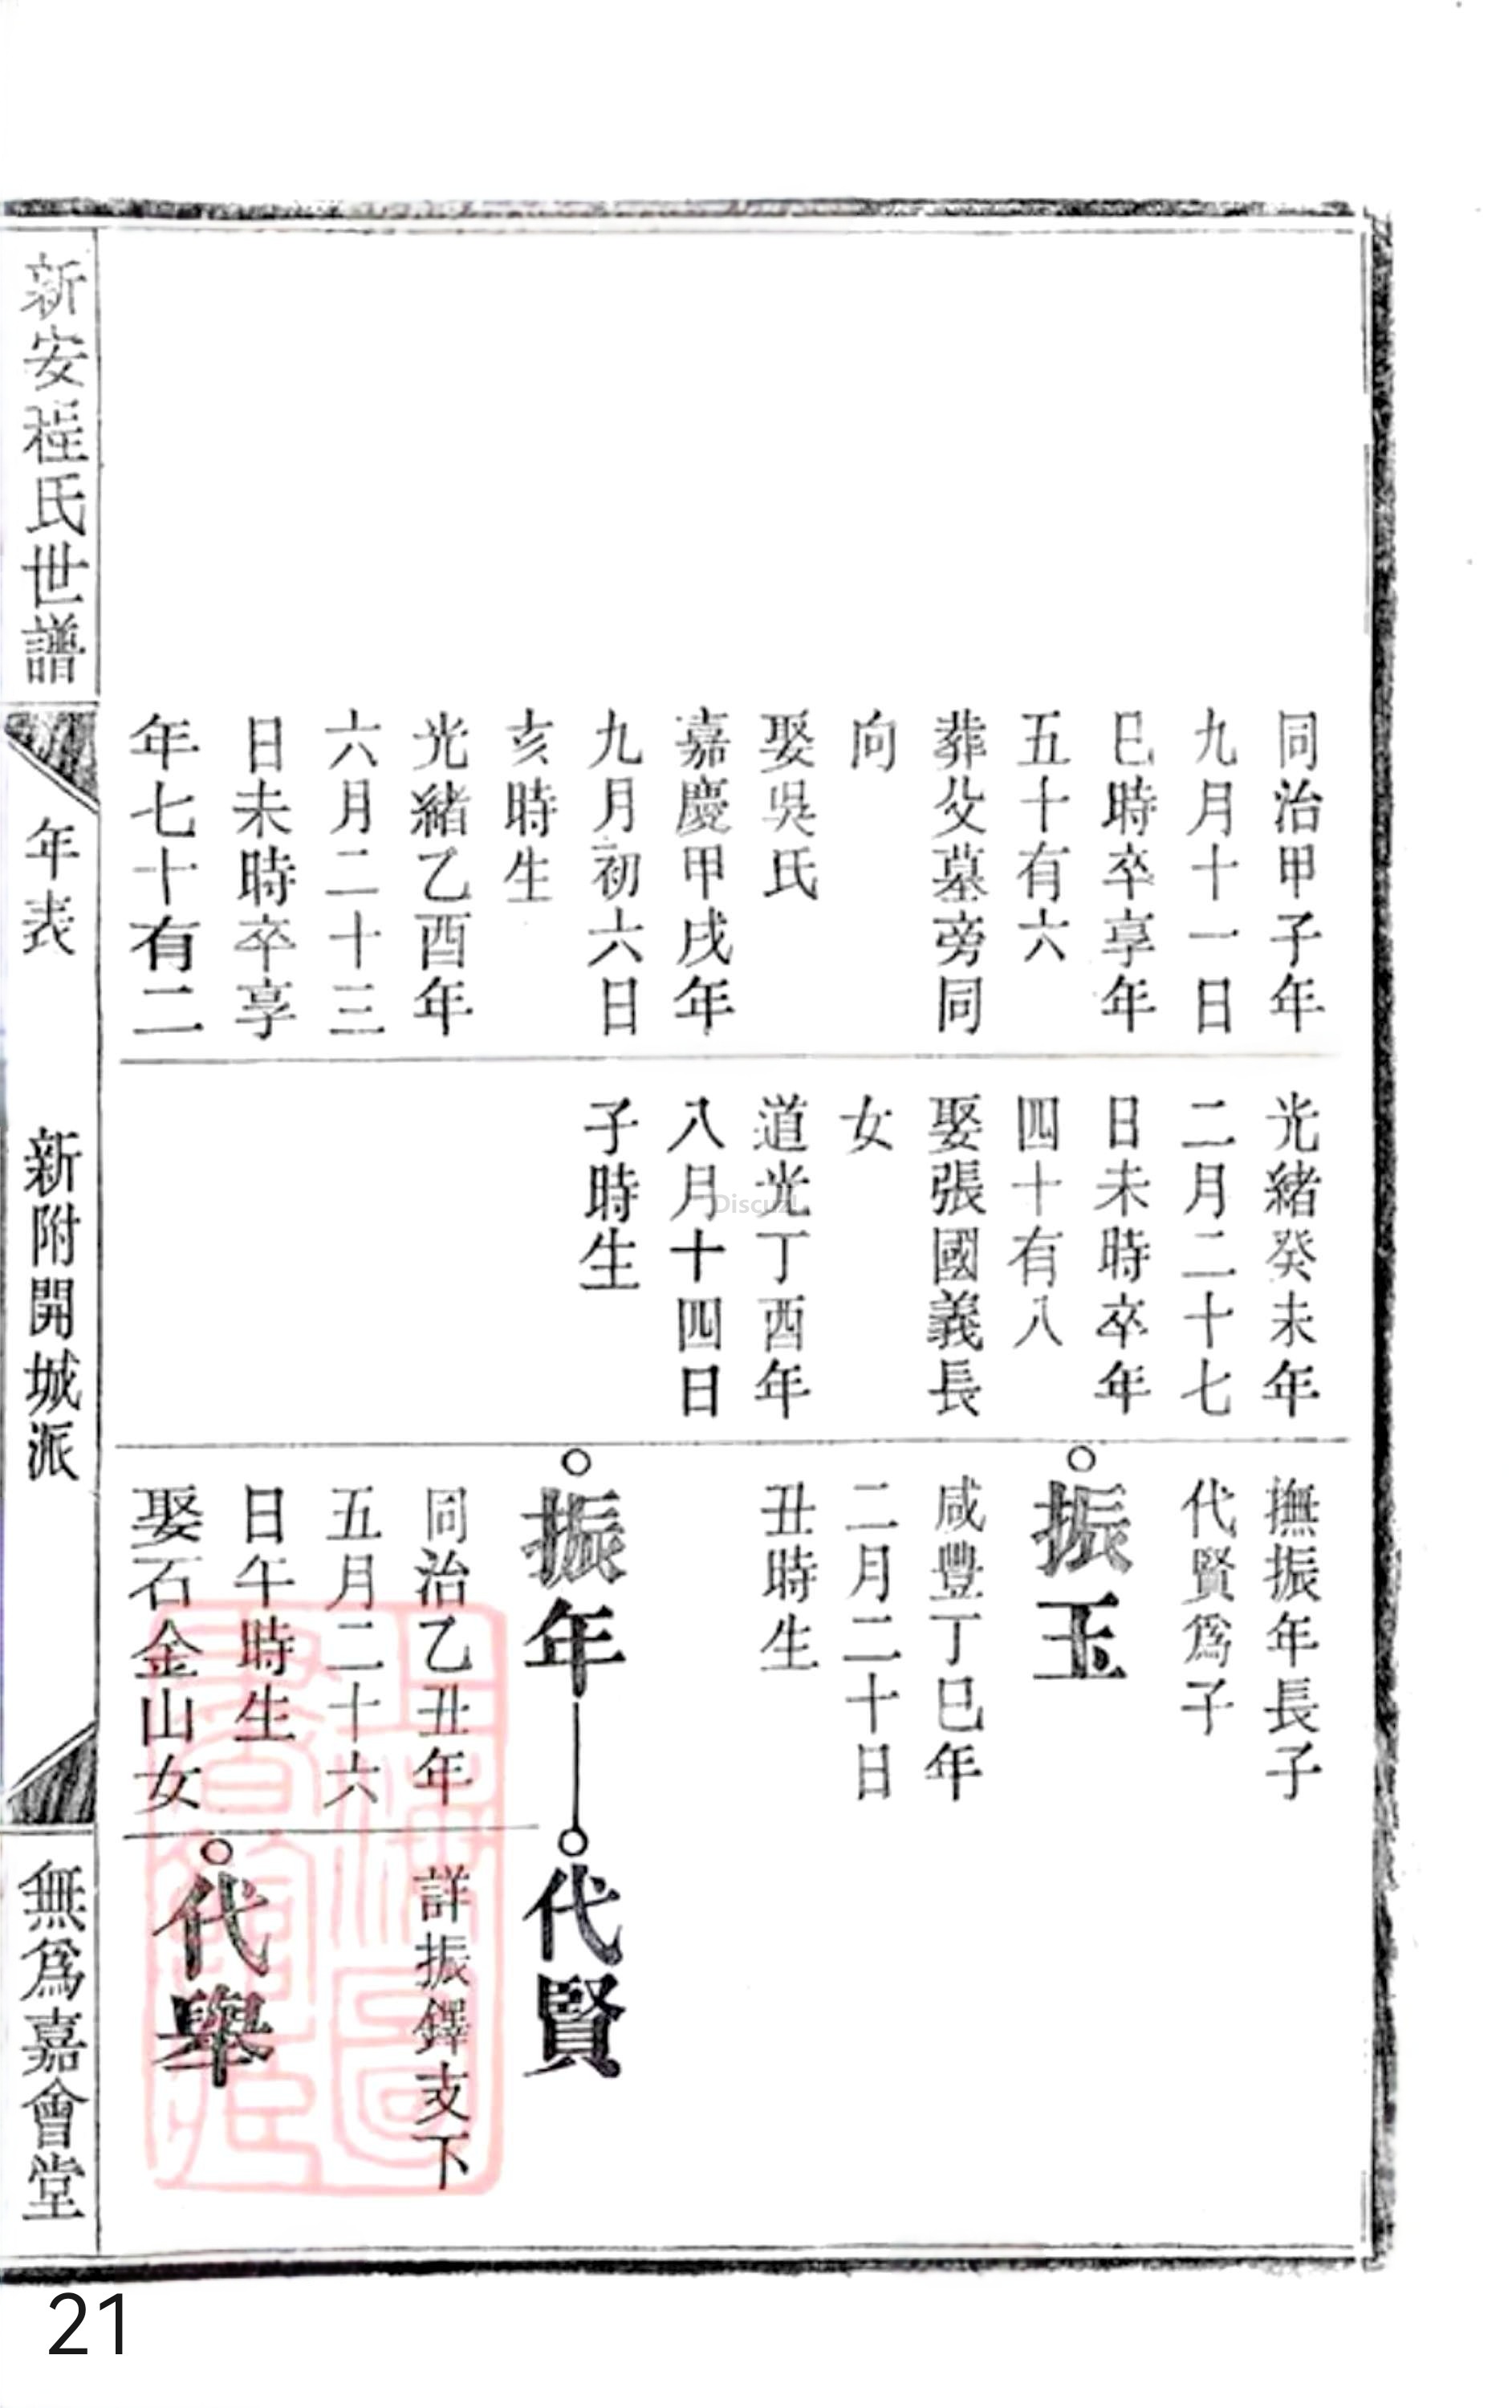 同治甲子年
九月十一日
巳時卒享年
五十有六
葬父墓旁同
向
娶吳氏
嘉慶甲戌年
九月初六日
亥時生
光緒乙酉年
六月二十三
日未時卒享
年七十有二
光緒癸未年
二月二十七
日未時卒年
四十有八
娶張國義長
女
道光丁酉年
八月十四日
子時生
撫振年長子
代賢爲子
振玉
咸豐丁巳年
二月二十日
丑時生
振年
同治乙丑年
五月二十六
日午時生
娶石金山女
代賢
詳振鐸支下
代舉
新安程氏世譜
年表
新附開城派
無爲嘉會堂
Discuz!
21